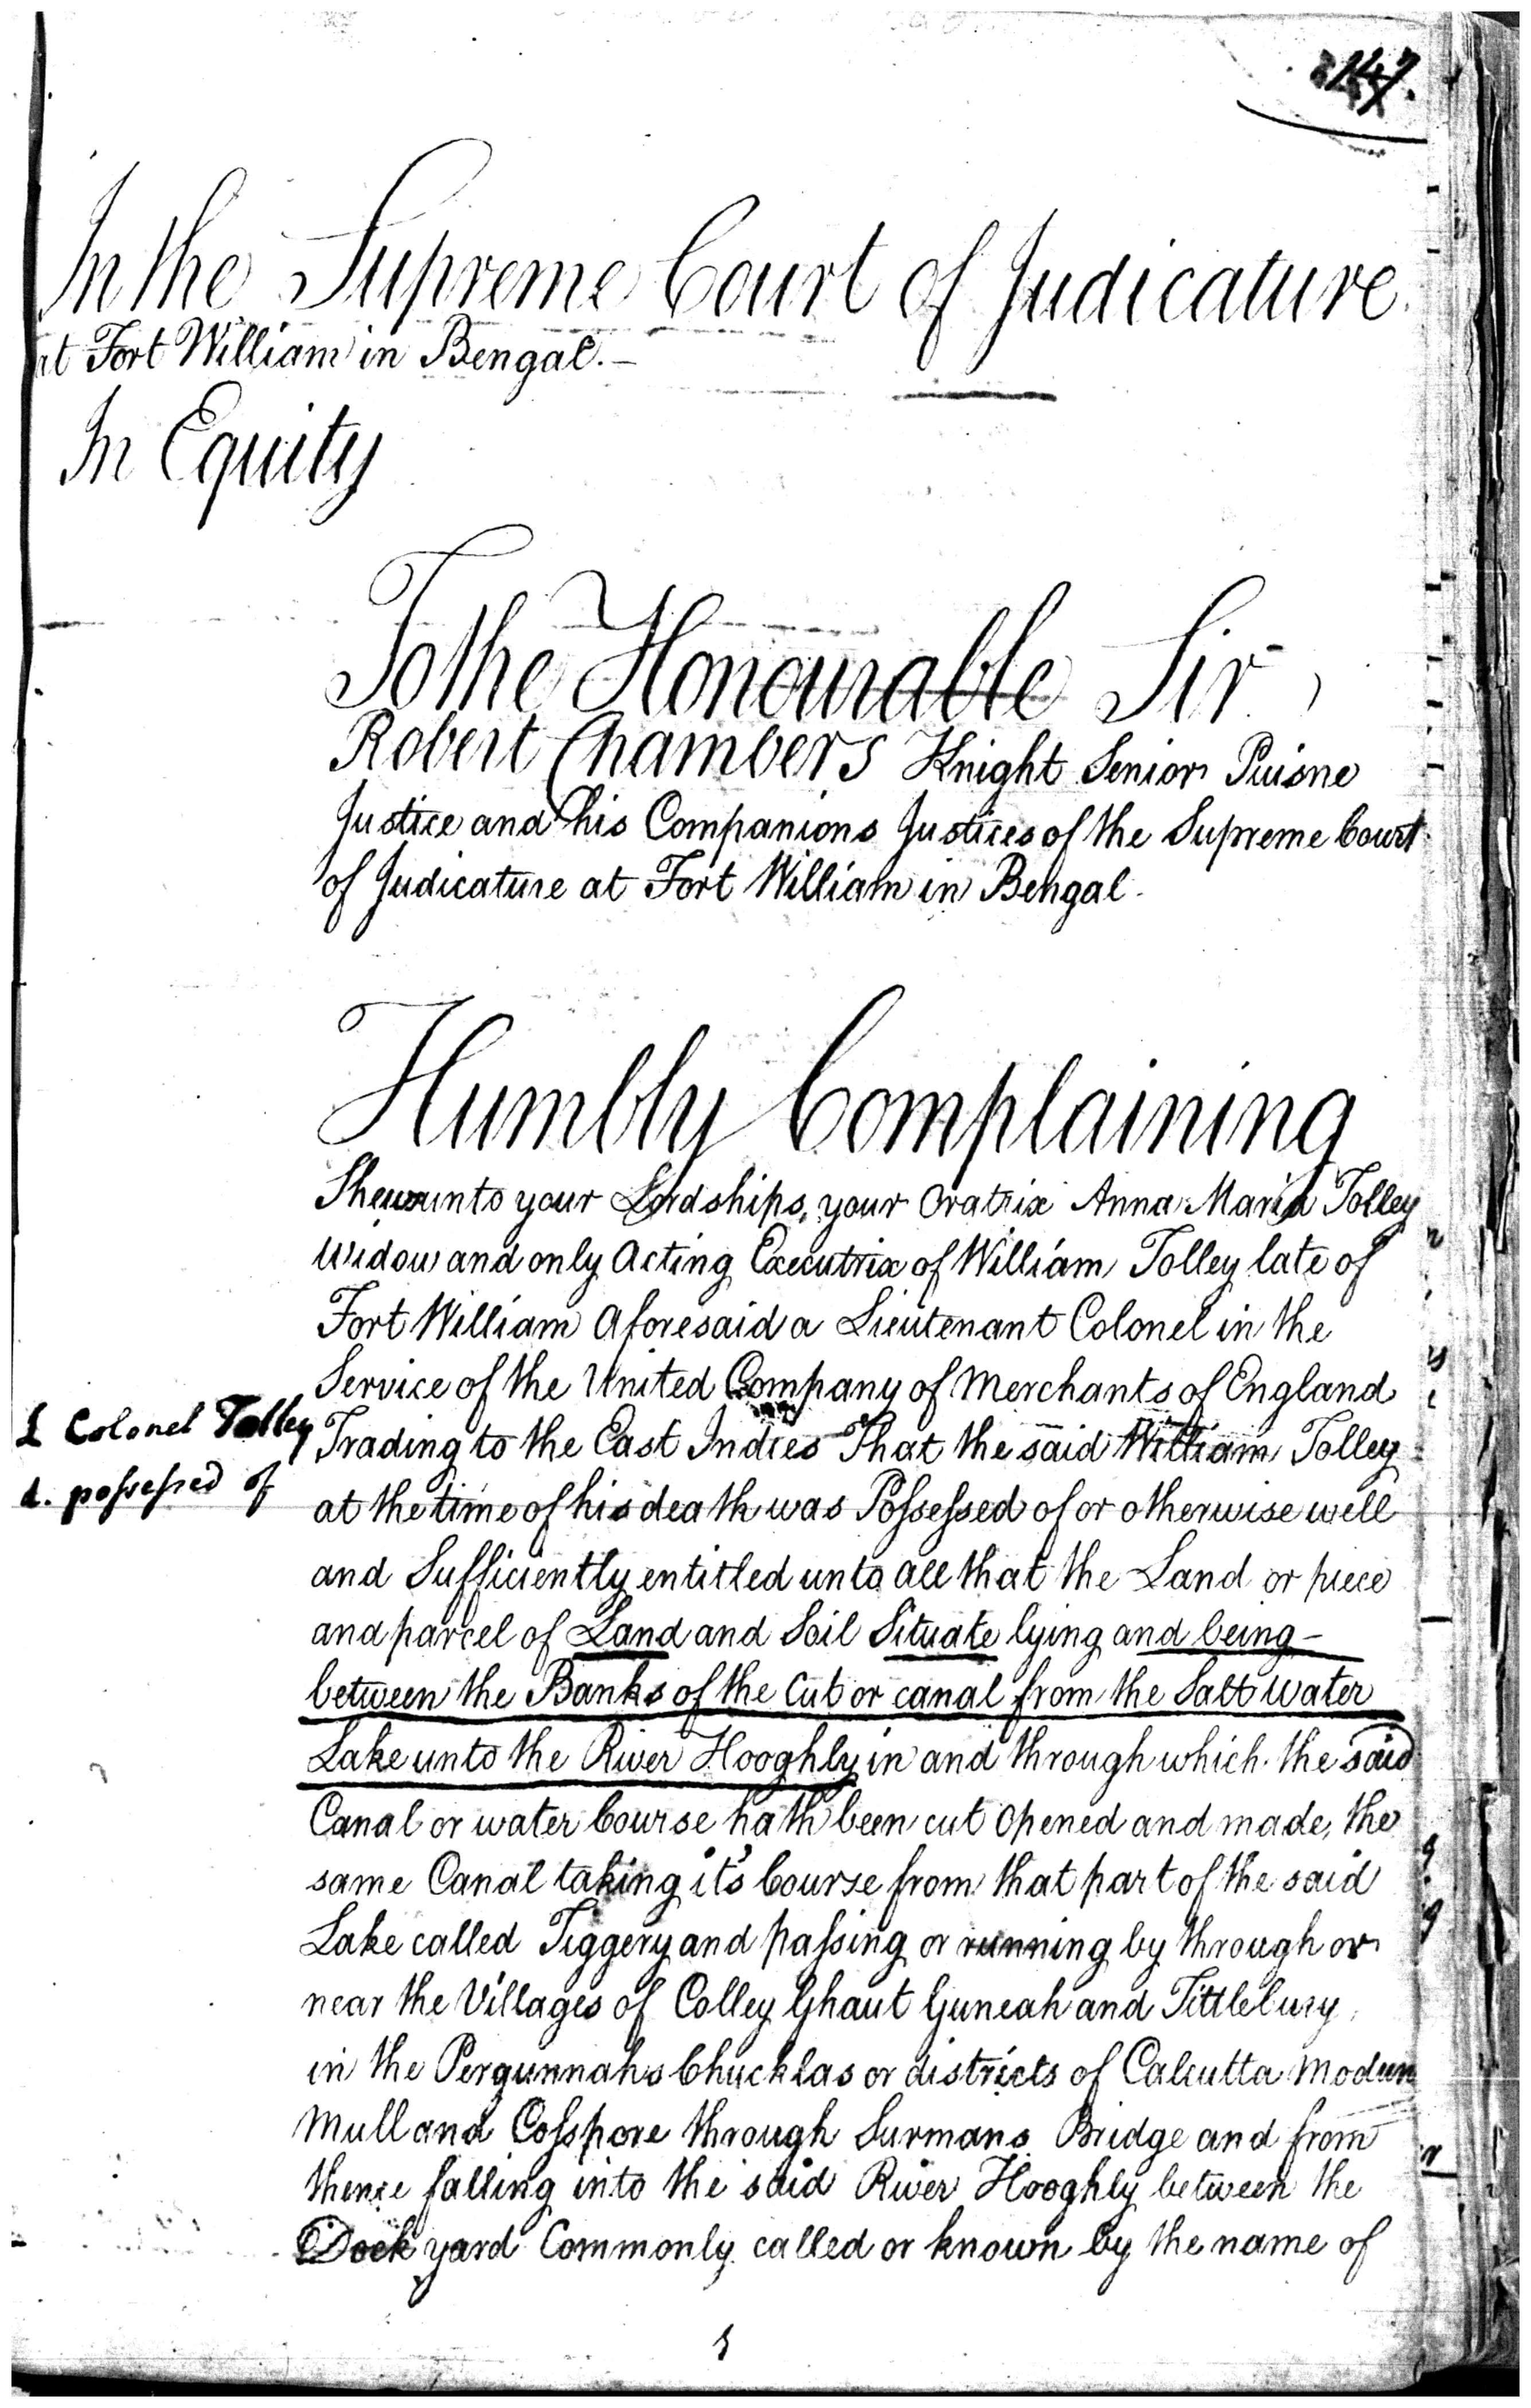 In the Supreme Court of Judicature
at Fort William in Bengal.
In Equity
To the Honourable Sir
Robert Chambers Knight Senior Puisne
Justice and his Companions Justices of the Supreme Court
of Judicature at Fort William in Bengal.
Humbly Complaining
Shew unto your Lordships, your Oratrix Anna Maria Tolley
Widow and only Acting Executrix of William Tolley late of
Fort William Aforesaid a Lieutenant Colonel in the
Service of the United Company of Merchants of England
Colonel Tolley
Trading to the East Indies That the said William Tolley
possessed of
at the time of his death was Possessed of or otherwise well
and Sufficiently entitled unto all that the Land or piece
and parcel of Land and Soil Situate lying and being
between the Banks of the Cut or canal from the Salt water
Lake unto the River Hooghly in and through which the said
Canal or water Course hath been cut Opened and made, the
same Canal taking it's Course from that part of the said
Lake called Tiggery and passing or running by through or
near the Villages of Colley Ghaut Guneah and Tittlebury
in the Pergunnahs Chucklas or districts of Calcutta Modun
Mull and Cosspore through Surmans Bridge and from
thence falling into the said River Hooghly between the
Dock yard Commonly called or known by the name of